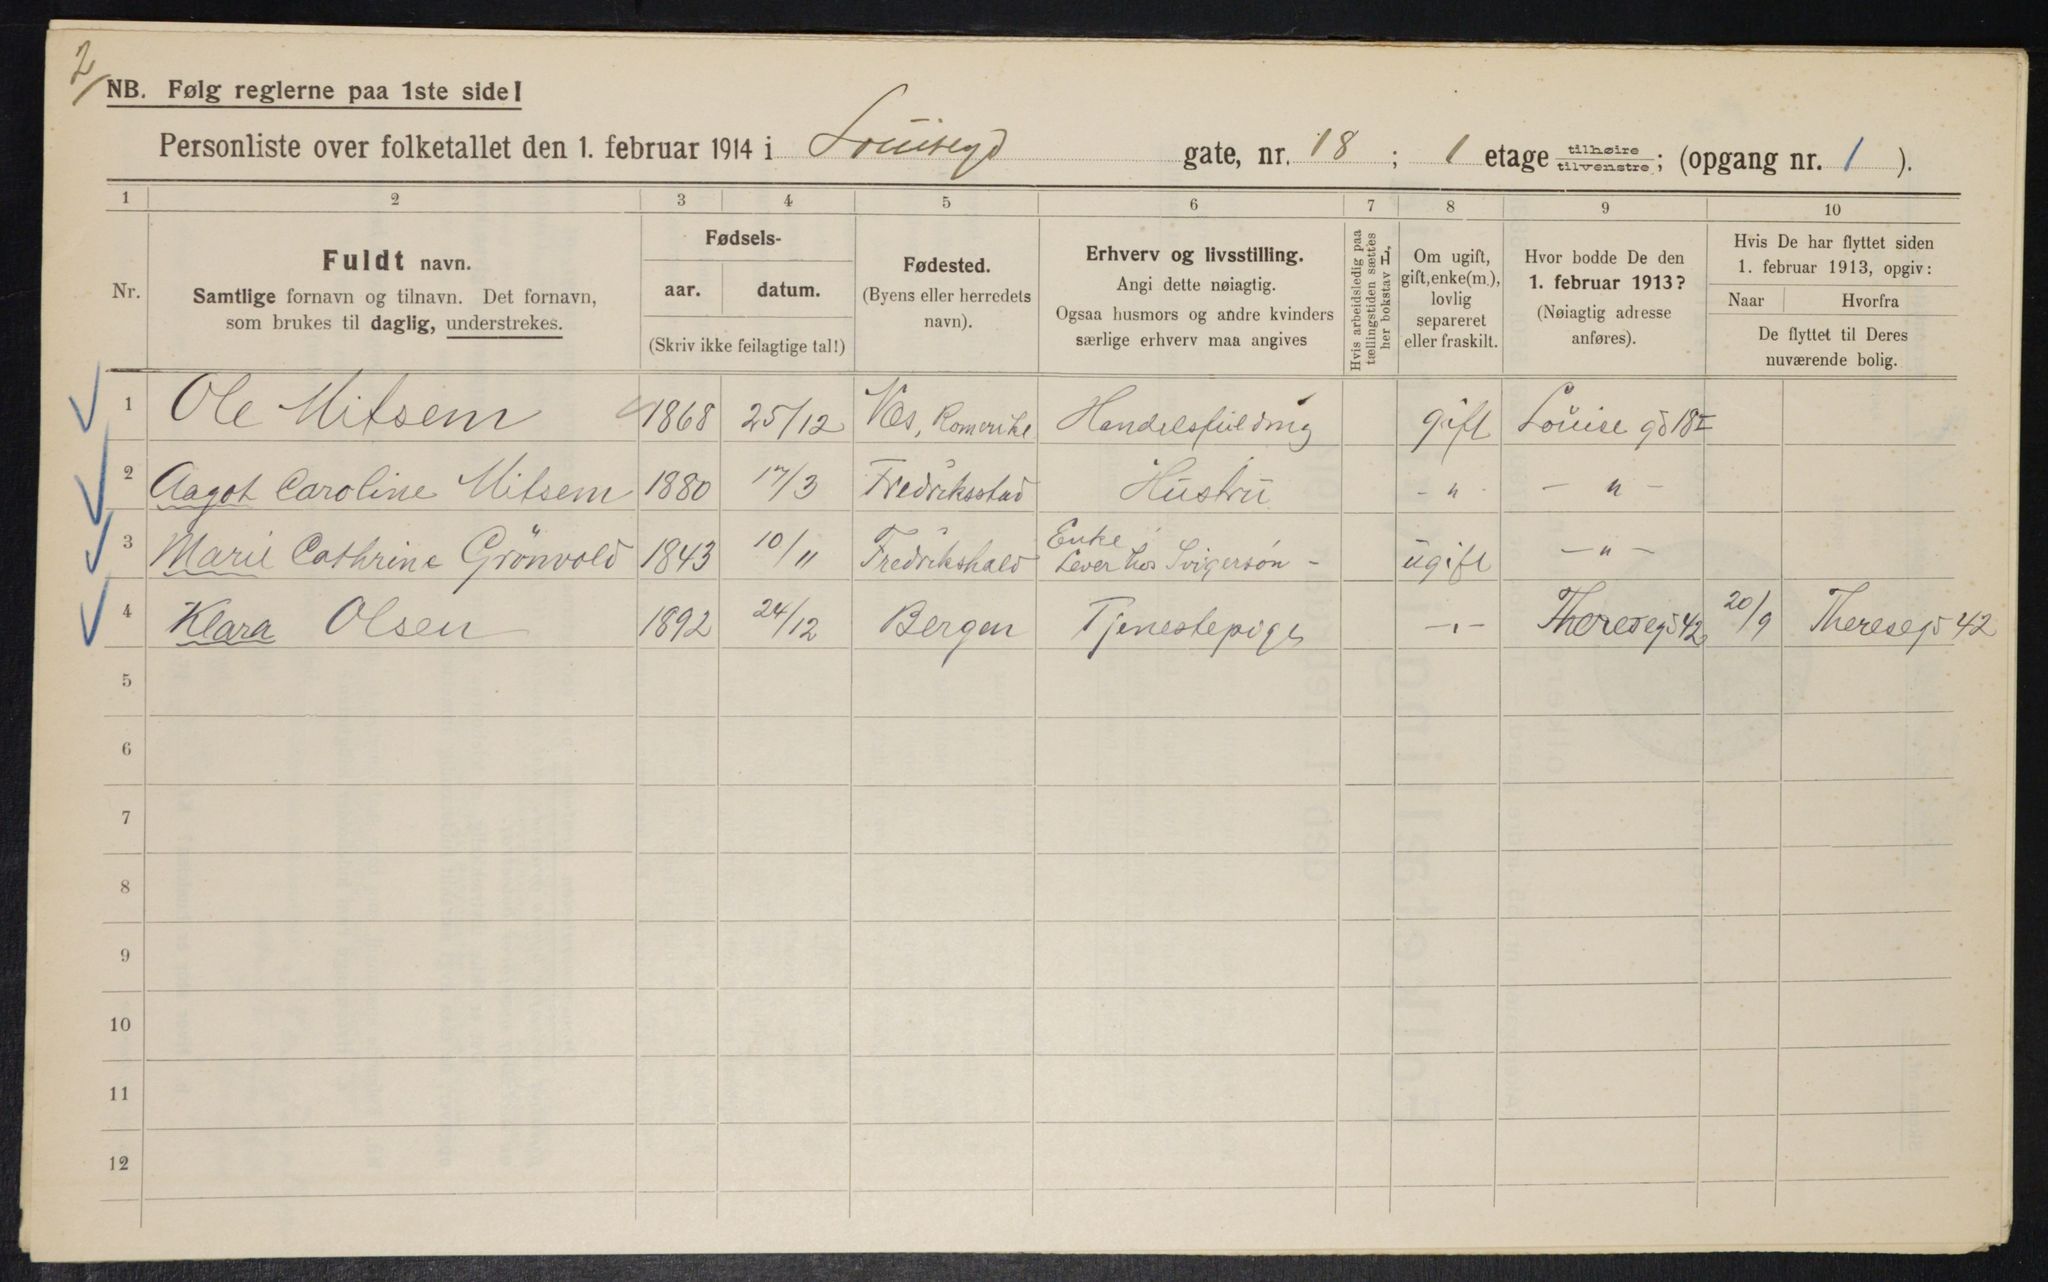 2/
NB. Følg reglerne paa 1ste side!
Personliste over folketallet den 1. februar 1914 i Louisegd gate, nr. 18 ; 1 etage tilhøire tilvenstre ; (opgang nr. 1 ).
1 2 3 4 5 6 7 8 9 10
Nr.
Fuldt navn.
Samtlige fornavn og tilnavn. Det fornavn,
som brukes til daglig, understrekes.
Fødsels-
aar. datum.
(Skriv ikke feilagtige tal!)
Fødested.
(Byens eller herredets
navn).
Erhverv og livsstilling.
Angi dette nøiagtig.
Ogsaa husmors og andre kvinders
særlige erhverv maa angives
Hvis arbeidsledig paa
tællingstiden sættes
her bokstav H,
Om ugift,
gift, enke(m.),
lovlig
separeret
eller fraskilt.
Hvor bodde De den
1. februar 1913?
(Nøiagtig adresse
anføres).
Hvis De har flyttet siden
1. februar 1913, opgiv:
Naar Hvorfra
De flyttet til Deres
nuværende bolig.
1 Ole Mitsem 1868 25/12 Næs, Romerike Handelsfuldmig gift Louise gd 18 I
2 Aagot Caroline Mitsem 1880 17/3 Fredriksstad Hustru - " - - " -
3 Marie Cathrine Grönvold 1843 10/11 Fredrikshald Enke Lever hos Svigersøn - ugift - " -
4 Klara Olsen 1892 24/12 Bergen Tjenestepige - " - Theresegd 42 20/9 Theresegd 42
5
6
7
8
9
10
11
12